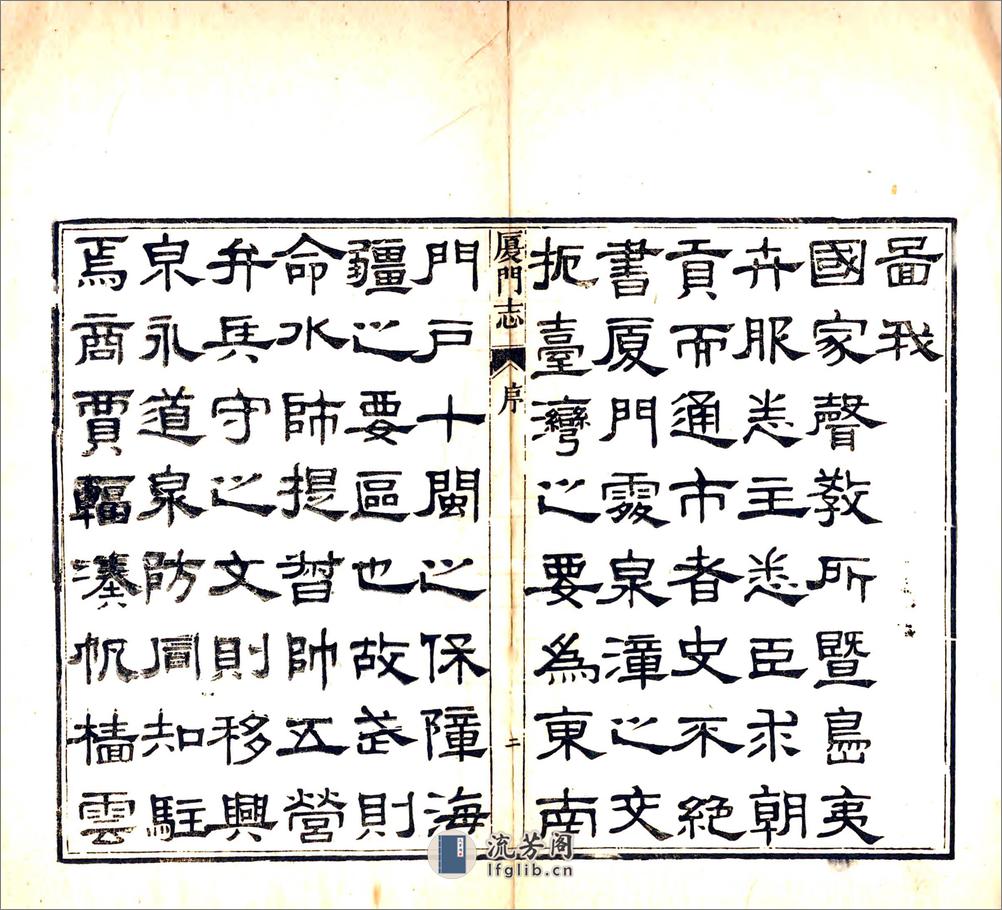 啚我
國家聲教所暨島夷
卉服悉主悉臣求朝
貢而通市者史不絕
書厦門處泉漳之交
扼臺灣之要為東南
厦門志 序 二
門戶十閩之保障海
疆之要區也故武則
命水師提督帥五營
弁兵守之文則移興
泉永道泉防同知駐
焉商賈輻湊帆檣雲
流芳阁
lfglib.cn